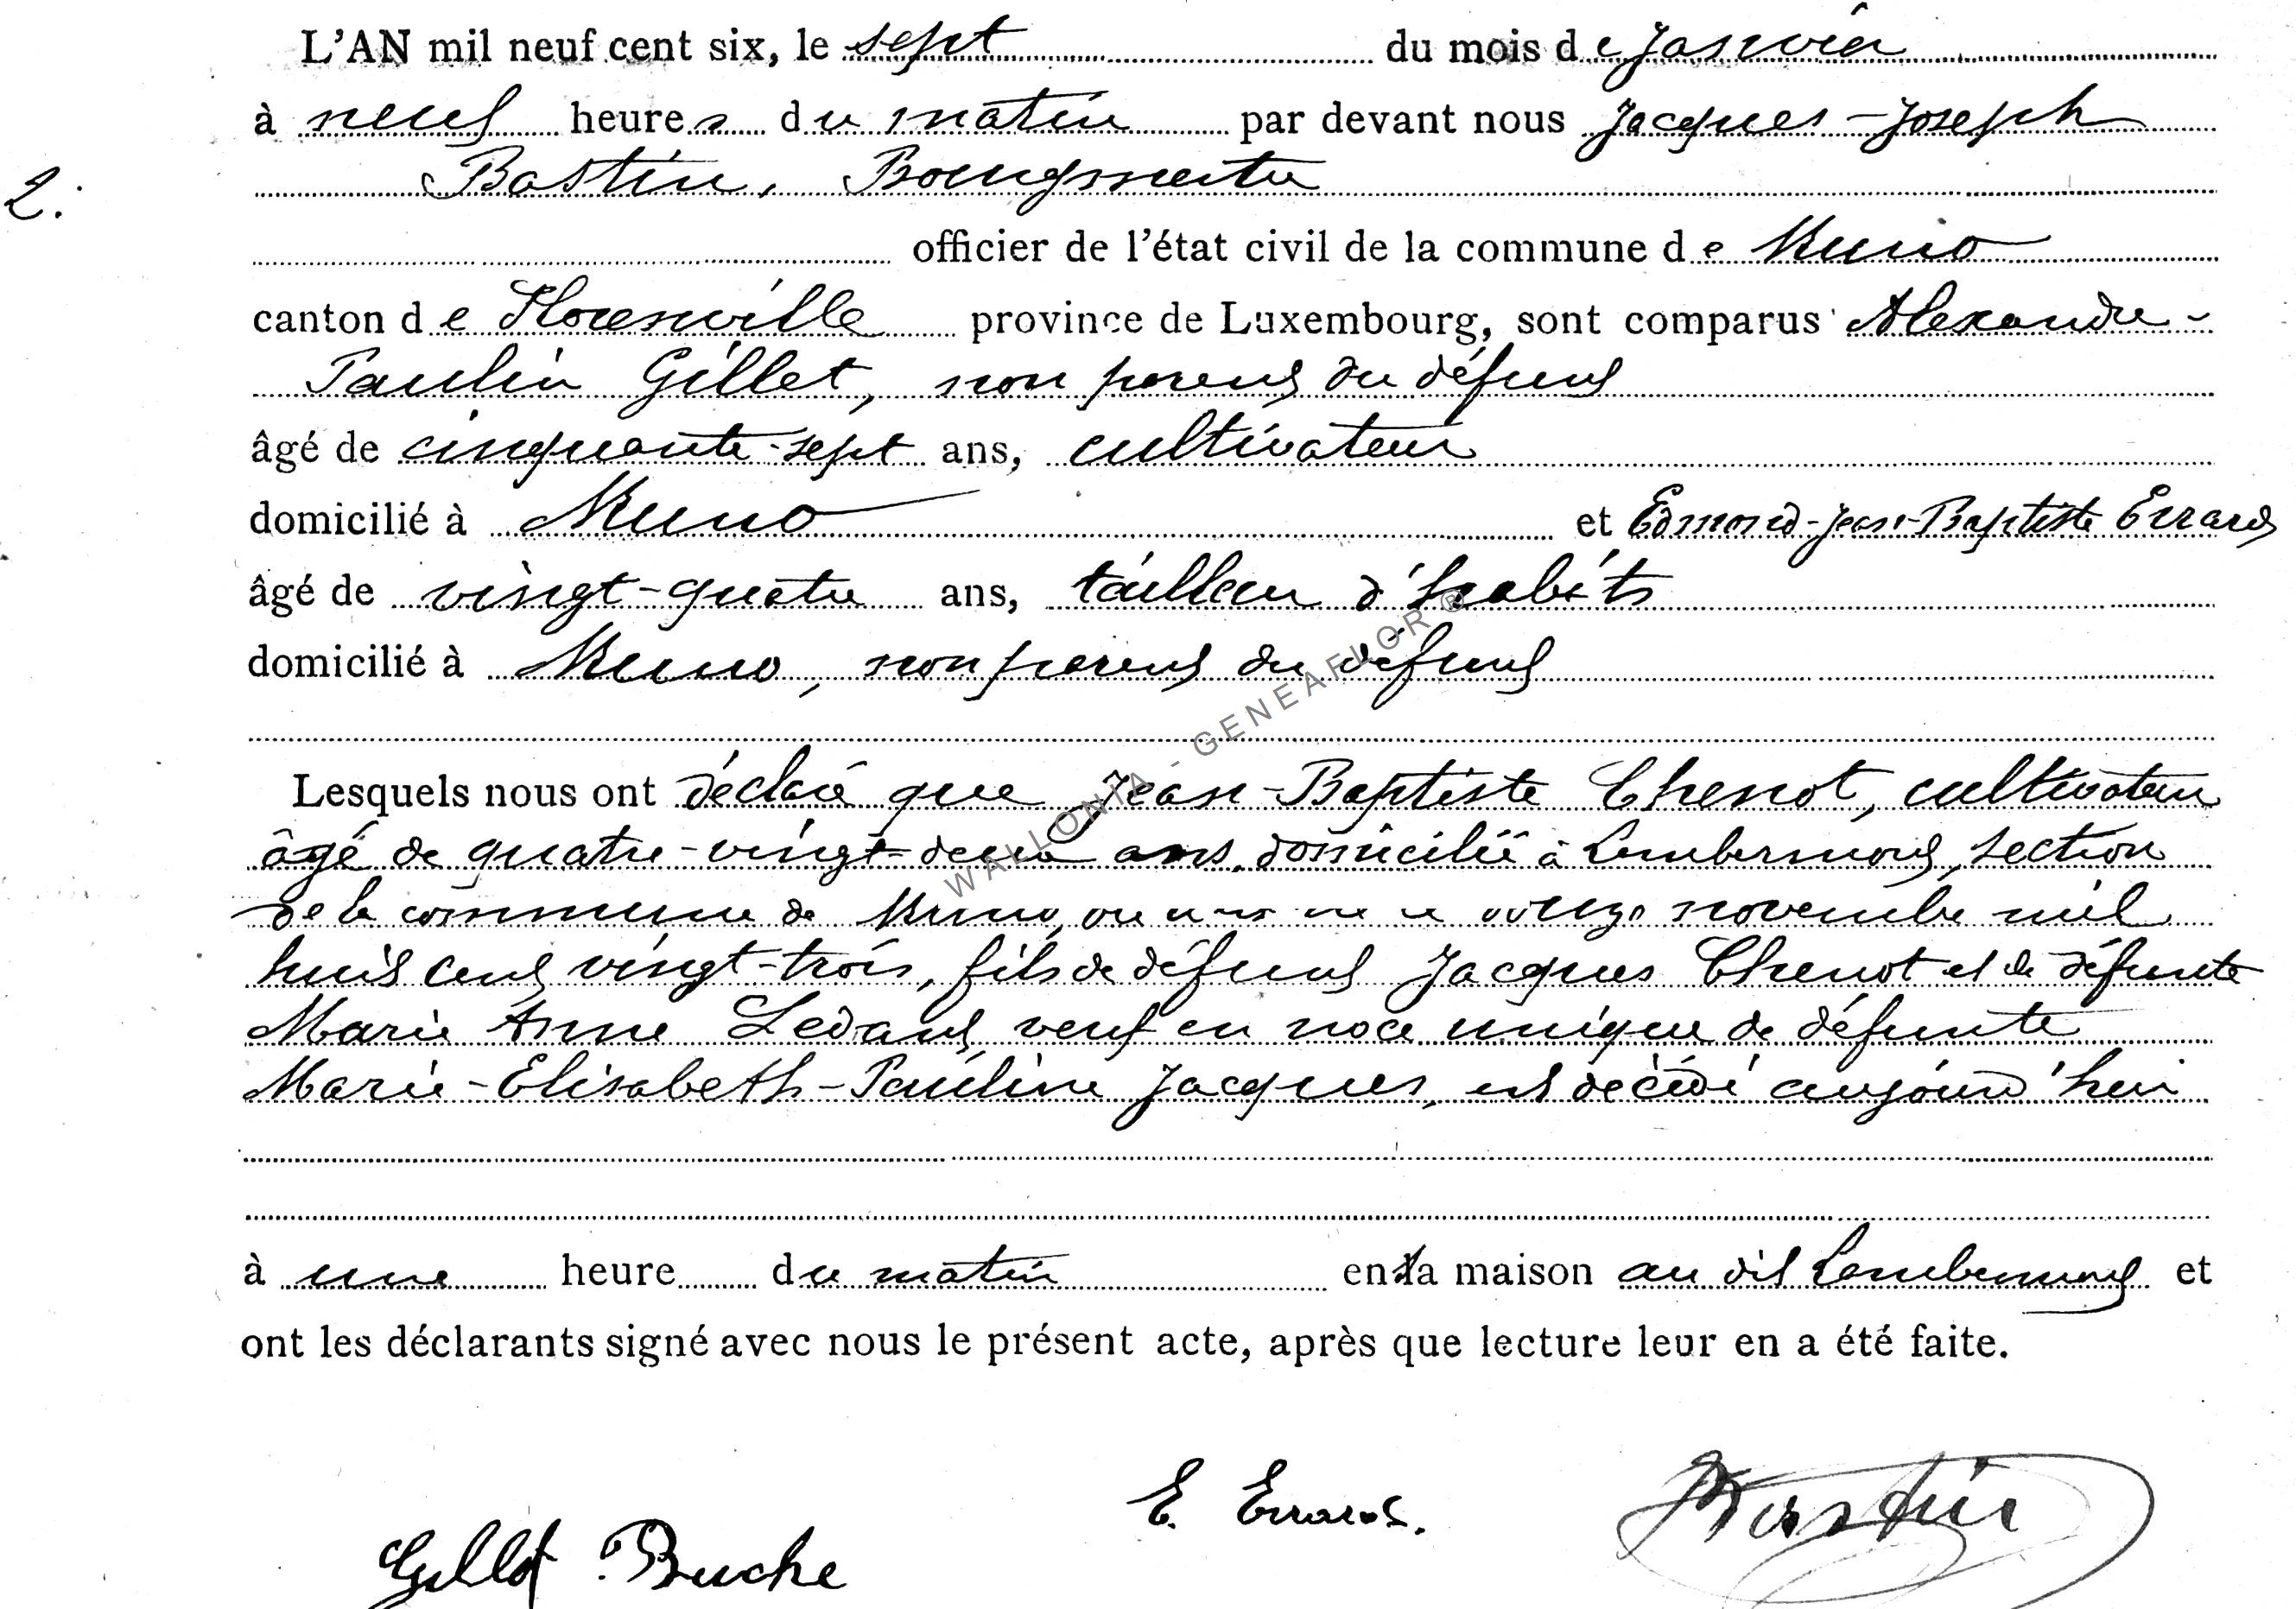 L'AN mil neuf cent six, le sept du mois de Janvier
à neuf heures du matin par devant nous Jacques-Joseph
2. Bastin, Bourgmestre
officier de l'état civil de la commune de Muno
canton de Florenville province de Luxembourg, sont comparus Alexandre-
Paulin Gillet, non parent du défunt
âgé de cinquante-sept ans, cultivateur
domicilié à Muno et Edmond-Jean-Baptiste Errard
âgé de vingt-quatre ans, tailleur d'habits
domicilié à Muno, non parent du défunt
WALLONIA - GENEAFLOR ®
Lesquels nous ont déclaré que Jean-Baptiste Chenot, cultivateur
âgé de quatre-vingt-deux ans, domicilié à Lambermont, section
de la commune de Muno, novembre mil
huit cent vingt-trois, fils de défunt Jacques Chenot et de défunte
Marie Anne Ledant, veuf en noce unique de défunte
Marie-Elisabeth-Pauline Jacques, est décédé aujourd'hui
à une heure du matin en la maison au dit Lambermont et
ont les déclarants signé avec nous le présent acte, après que lecture leur en a été faite.
E. Errard. Bastin
Gillet Buche